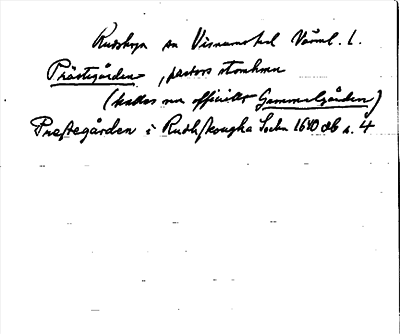 Rudskoga sn Visnums hd Värml. l.
Prästgården, pastors stomhemm
(kallas nu officiellt Gammelgården)
Prestegården i Rudhskougha Sochn 1640 Jb n. 4